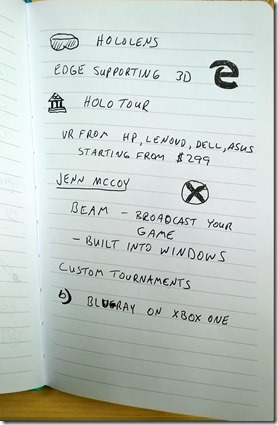 HOLOLENS
EDGE SUPPORTING 3D
HOLO TOUR
VR FROM HP, LENOVO, DELL, ASUS
STARTING FROM $299
JENN MCCOY
BEAM - BROADCAST YOUR
GAME
- BUILT INTO WINDOWS
CUSTOM TOURNAMENTS
BLUGRAY ON XBOX ONE